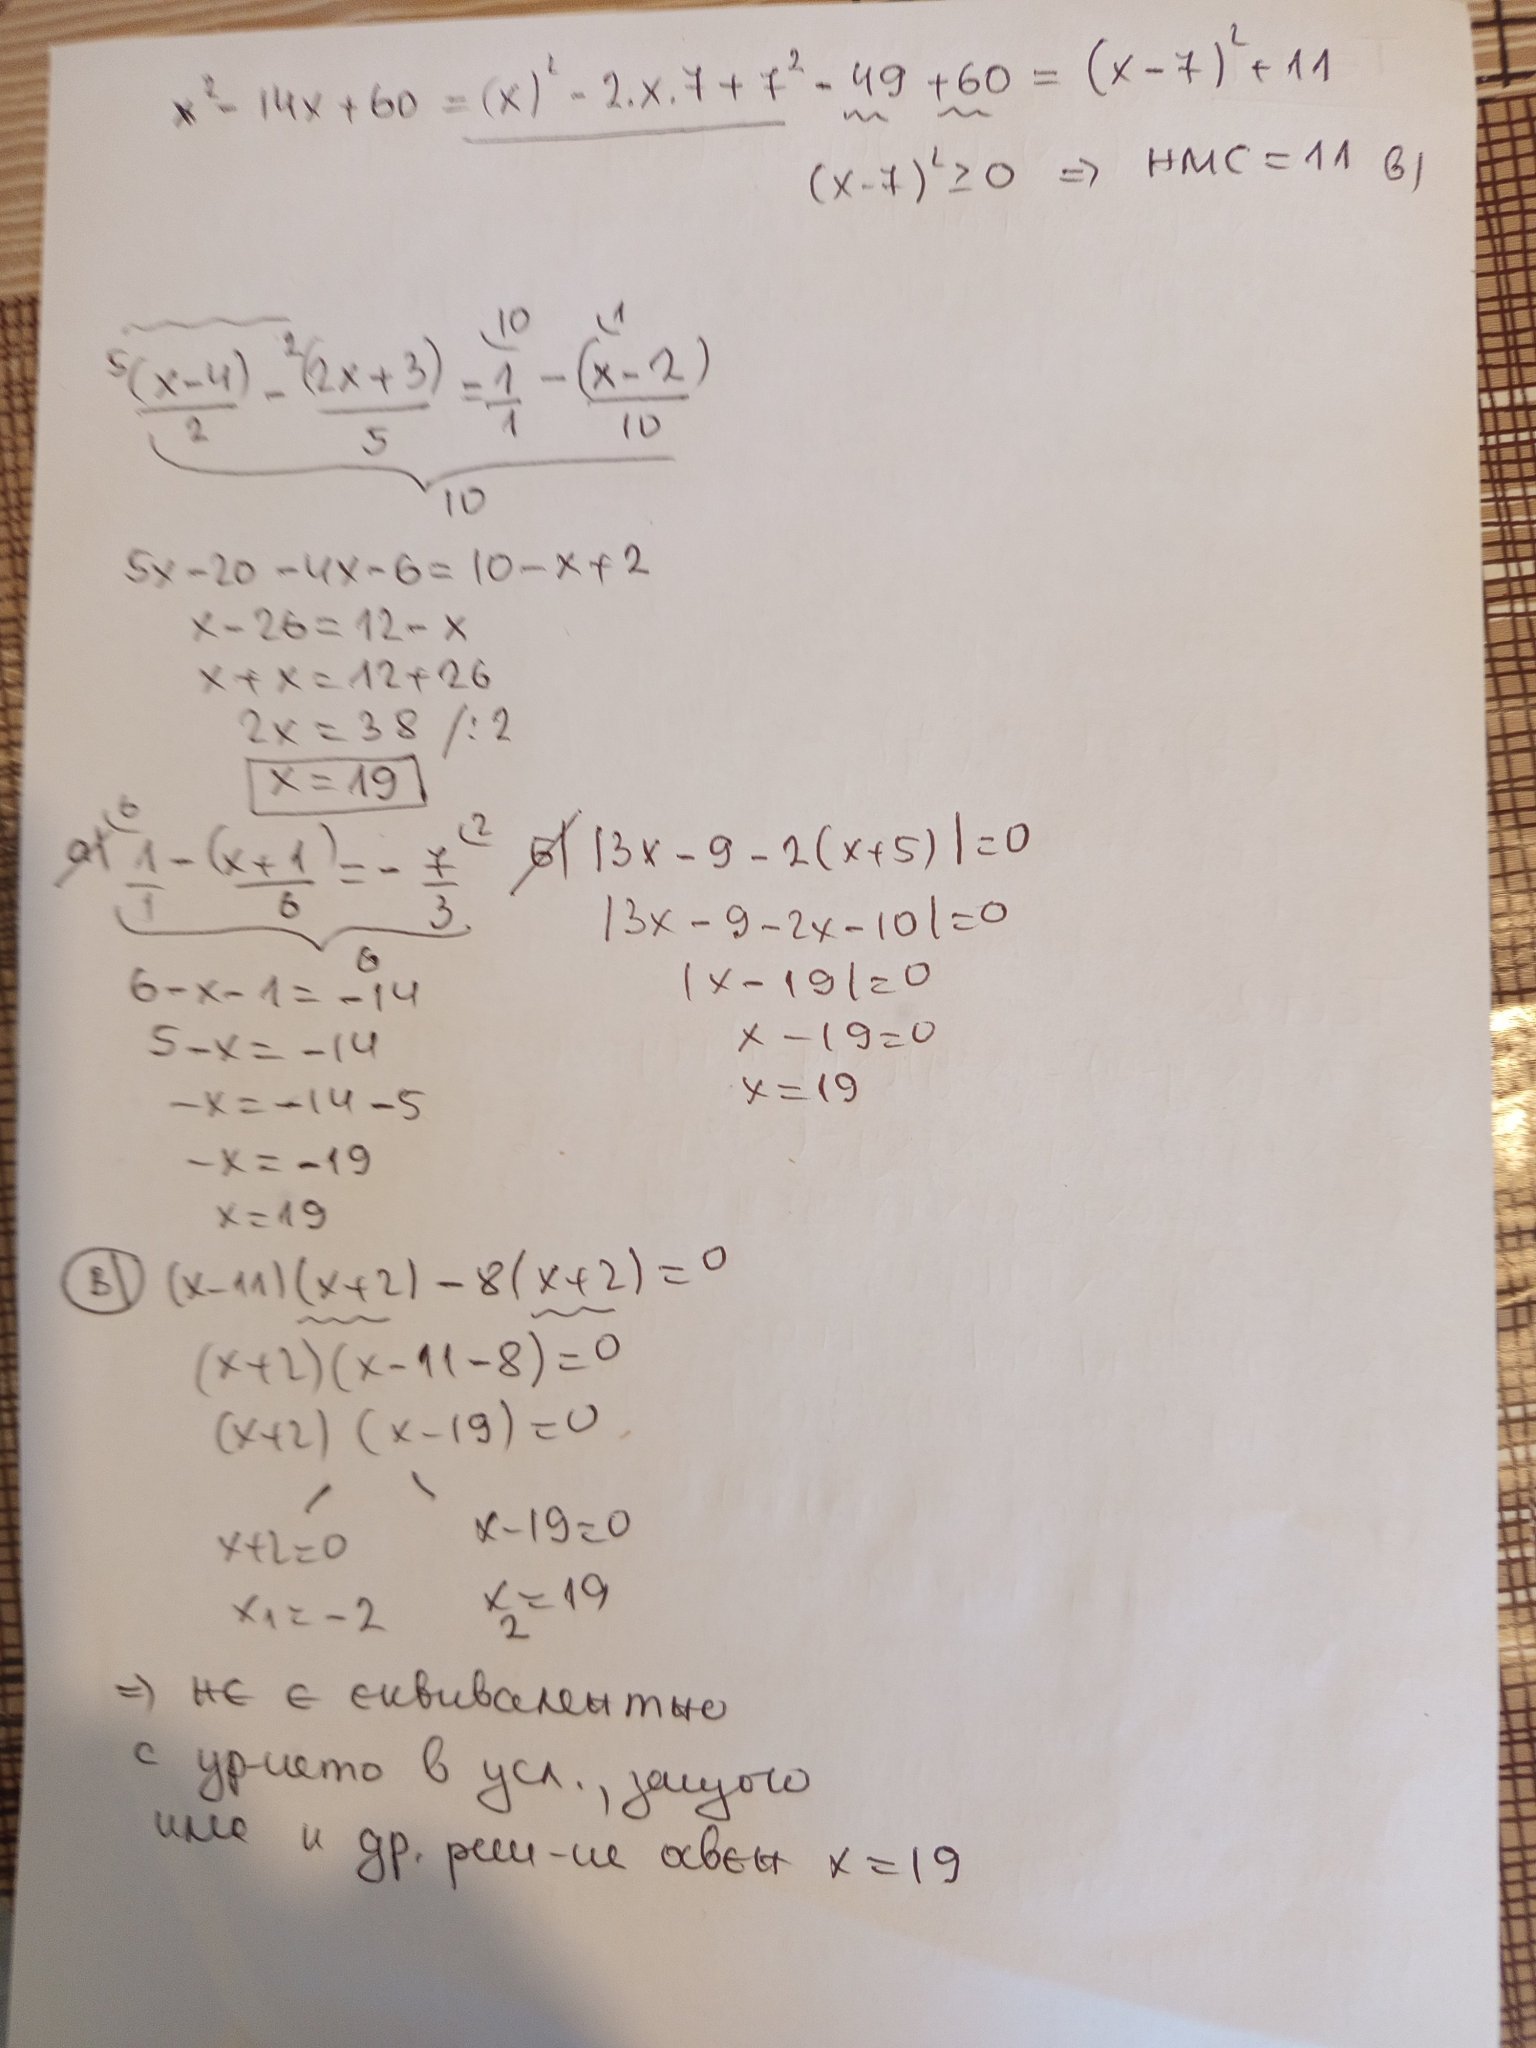 x² - 14x + 60 = (x)² - 2.x.7 + 7² - 49 + 60 = (x - 7)² + 11
(x - 7)² ≥ 0 ⇒ НМС = 11 в)
5(x - 4)/2 - 2(2x + 3)/5 = 1/1 (10 - (x - 2)/10 (1
10
5x - 20 - 4x - 6 = 10 - x + 2
x - 26 = 12 - x
x + x = 12 + 26
2x = 38 /:2
x = 19
а) 1/1 (6 - (x + 1)/6 = - 7/3 (2
6
6 - x - 1 = -14
5 - x = -14
-x = -14 - 5
-x = -19
x = 19
б) |3x - 9 - 2(x + 5)| = 0
|3x - 9 - 2x - 10| = 0
|x - 19| = 0
x - 19 = 0
x = 19
В) (x - 11)(x + 2) - 8(x + 2) = 0
(x + 2)(x - 11 - 8) = 0
(x + 2) (x - 19) = 0
x + 2 = 0 x - 19 = 0
x₁ = -2 x₂ = 19
⇒ не е еквивалентно
с ур-нето в усл., защото
има и др. реш-ие освен x = 19